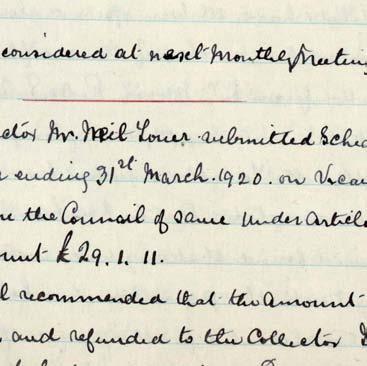 considered at next Monthly Meeting
ctor Mr. Neil Toner submitted Sched
ending 31st March. 1920. on Vacan
re the Council of same under Article
ount £29. 1. 11.
l recommended that the Amount
and refunded to the Collector